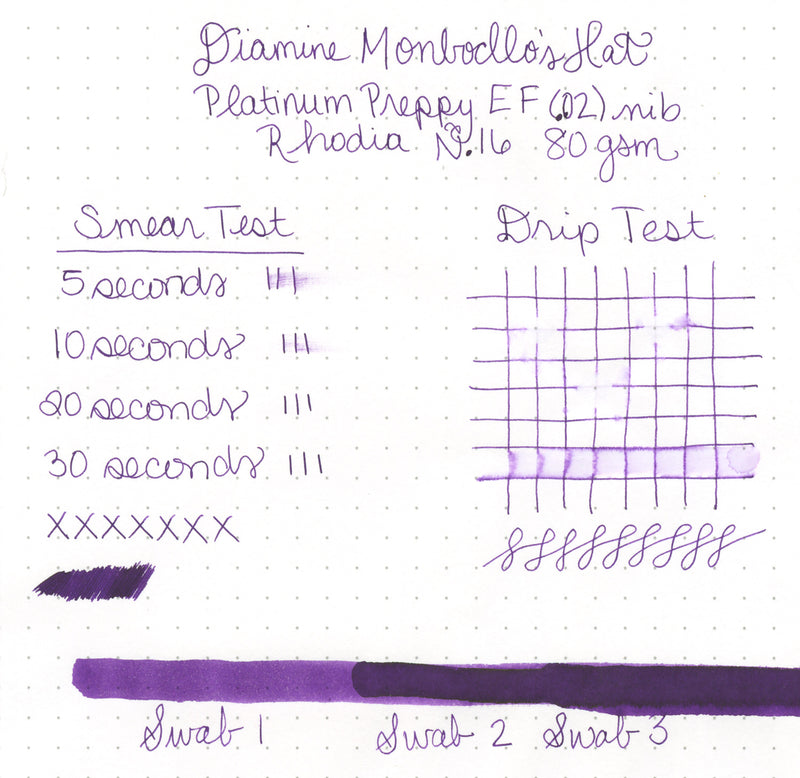 Diamine Monboddo's Hat
Platinum Preppy EF (.02) nib
Rhodia N°.16 80 gsm
Smear Test
Drip Test
5 seconds III
10 seconds III
20 seconds III
30 seconds III
XXXXXXX
Swab 1
Swab 2
Swab 3